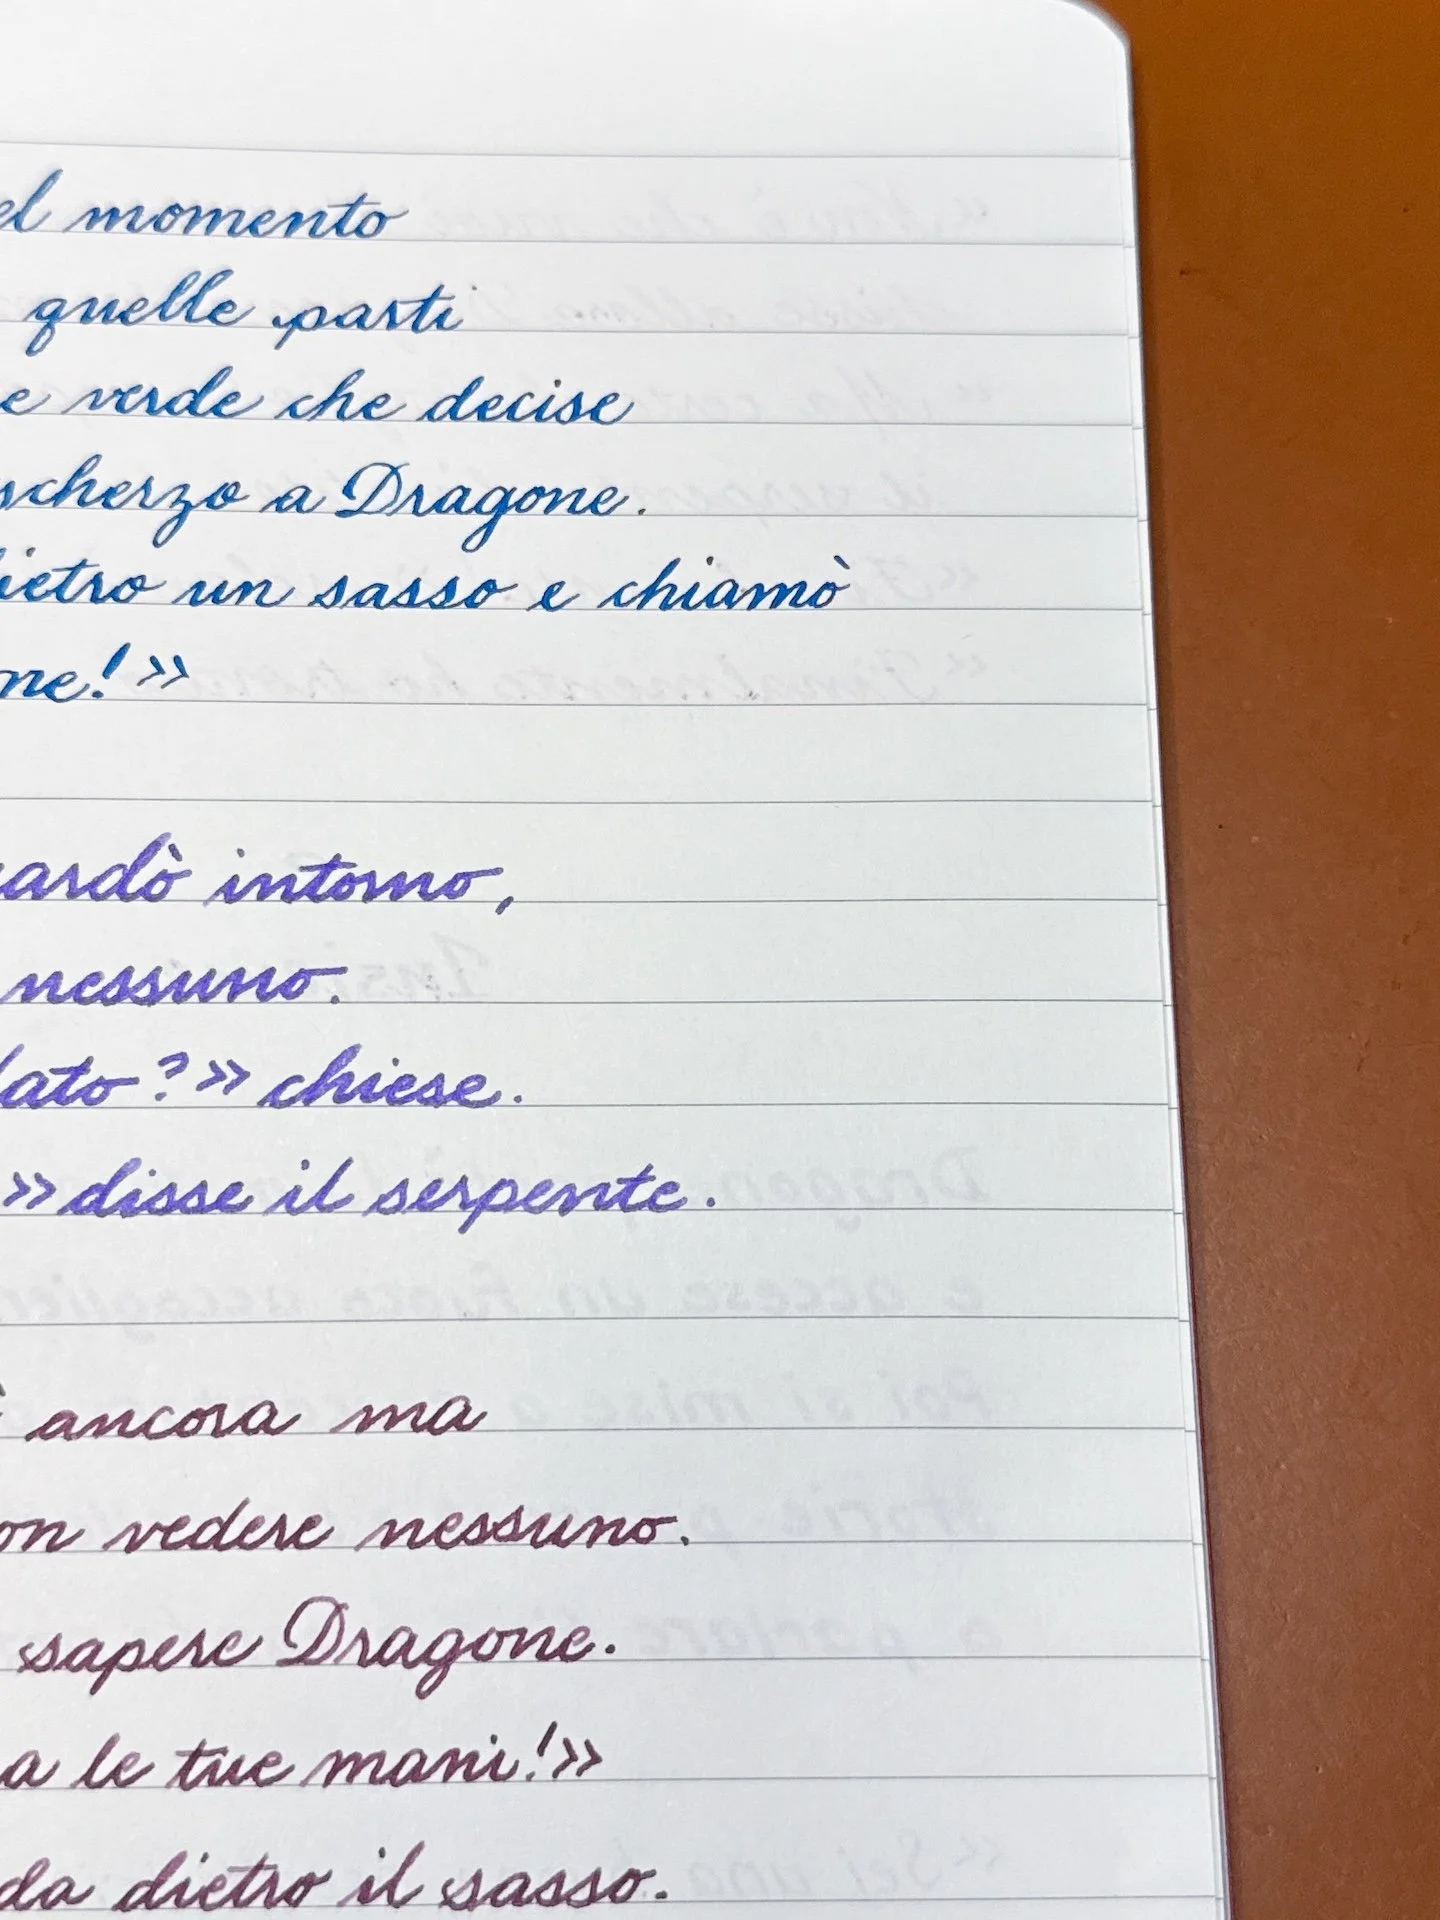 el momento
quelle parti
e verde che decise
scherzo a Dragone.
ietro un sasso e chiamò
ne!»
ardò intorno,
nessuno.
lato?» chiese.
» disse il serpente.
ancora ma
on vedere nessuno.
sapere Dragone.
a le tue mani!»
da dietro il sasso.